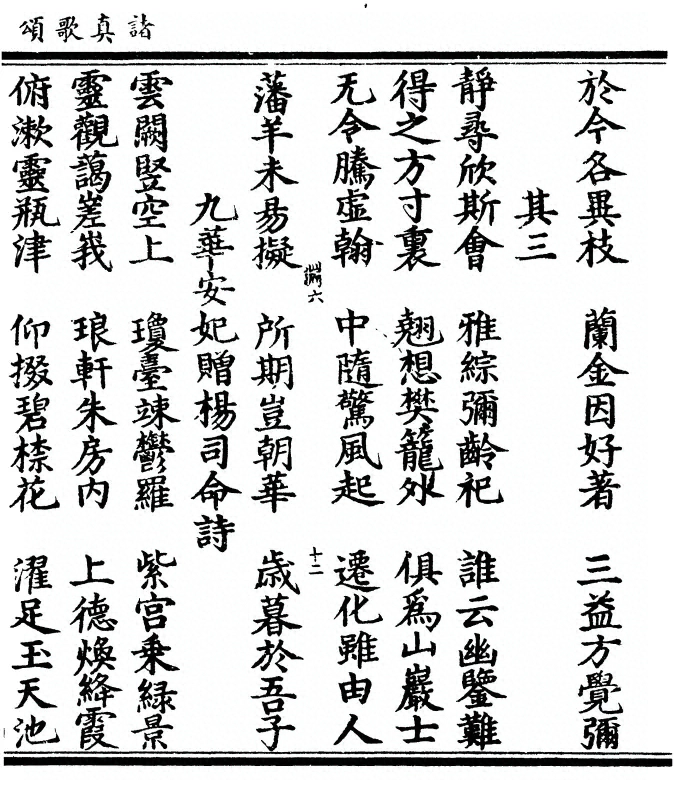 諸真歌頌
於今各異枝 蘭金因好著 三益方覺彌
其三
靜尋欣斯會 雅綜彌齡祀 誰云幽鑒難
得之方寸裏 翹想樊籠外 俱爲山巖士
无令騰虛翰 中隨驚風起 遷化雖由人
六 十二
藩羊未易擬 所期豈朝華 歲暮於吾子
九華安妃贈楊司命詩
雲闕竪空上 瓊臺竦鬱羅 紫宮乗緑景
靈觀藹嵳峩 琅軒朱房内 上德煥絳霞
俯漱靈瓶津 仰掇碧㮈花 濯足玉天池